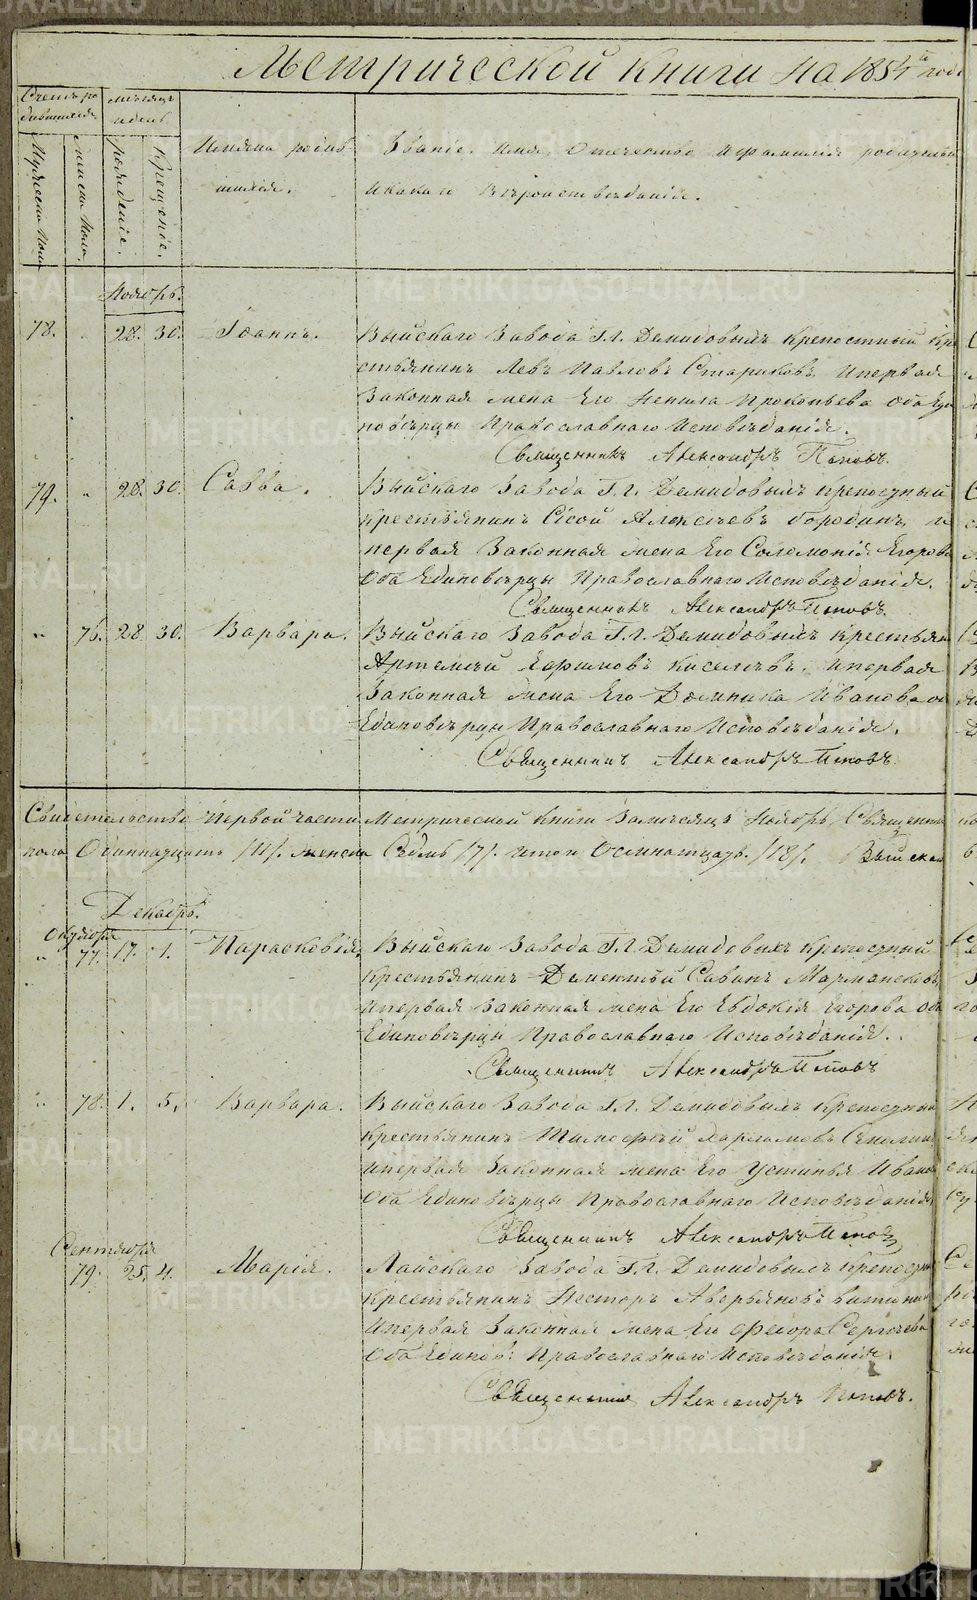 Метрической книги на 1854 года
Счетъ ро
дившихся
Мужеска пола
Женска пола
месяцъ
и день
рожденіе.
крещеніе.
Имяна родив
шихся.
Званіе. Имя, Отечество и фамилія родителей
и какаго вѣроисповѣданія.
Ноябрь.
78. " 28. 30. Іоаннъ. Выйскаго Завода Г.г. Демидовыхъ крепостный кре
стьянинъ Левъ Павловъ Стариковъ и первая
Законная жена Его Ненила Прокопьева оба Еди
новѣрцы Православнаго Исповѣданія.
Священникъ Александръ Поповъ.
79. " 28. 30. Савва. Выйскаго Завода Г.г. Демидовыхъ крепосучный
крестьянинъ Сісой Алексѣевъ Бородинъ и
первая Законная жена Его Соломонія Егорова
Оба Единовѣрцы Православнаго Исповѣданія.
Священникъ Александръ Поповъ.
" 76. 28 30. Варвара. Выйскаго Завода Г.г. Демидовыхъ крестьян
Артемій Ефимовъ Киселевъ и первая
Законная жена Его Домника Иванова об
Единовѣрцы Православнаго Исповѣданія.
Священникъ Александръ Поповъ.
Свидетельство Первой части Метрической книги За месяцъ Ноябрь Священни
пола Одиннадцать /11/. женска Седмь /7/. итого Осмнатцать. /18/. Выйскаго
Декабрь.
Октября
" 77. 17. 1. Парасковія. Выйскаго Завода Г.г. Демидовыхъ крепосучный
крестьянинъ Дементей Савинъ
и первая Законная жена Его Евдокія Егорова Оба
Единовѣрцы Православнаго Исповѣданія.
Священникъ Александръ Поповъ
" 78. 1. 5. Варвара. Выйскаго Завода Г.г. Демидовыхъ крепосучный
крестьянинъ Тимофей Харламовъ
и первая Законная жена Его Устинья Иванов
Оба Единовѣрцы Православнаго Исповѣданія
Священникъ Александръ Поповъ
Сентября
79. 25. 4. Марія. Лайскаго Завода Г.г. Демидовыхъ крепосучн
крестьянинъ Несторъ Аверьяновъ
и первая Законная жена Его Феѳора Сергѣева
Оба Единов: Православнаго Исповѣданія.
Священникъ Александръ Поповъ.
METRIKI.GASO-URAL.RU